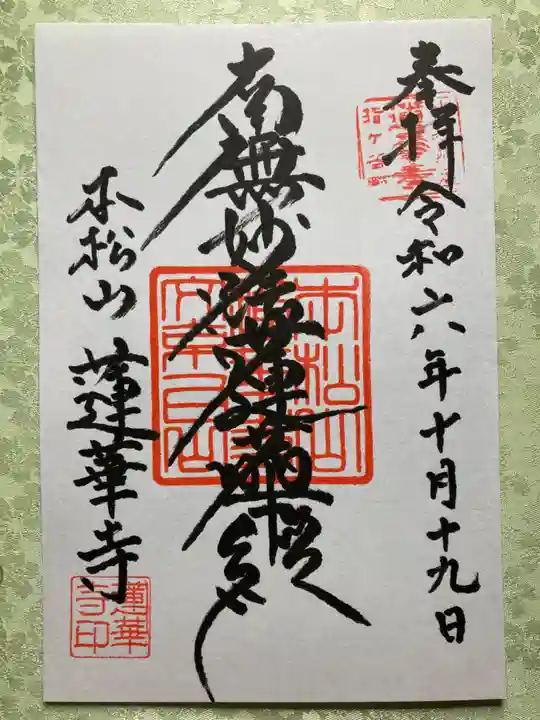 奉拝 令和六年十月十九日
南無妙法蓮華経
本松山 蓮華寺
蓮華
寺印